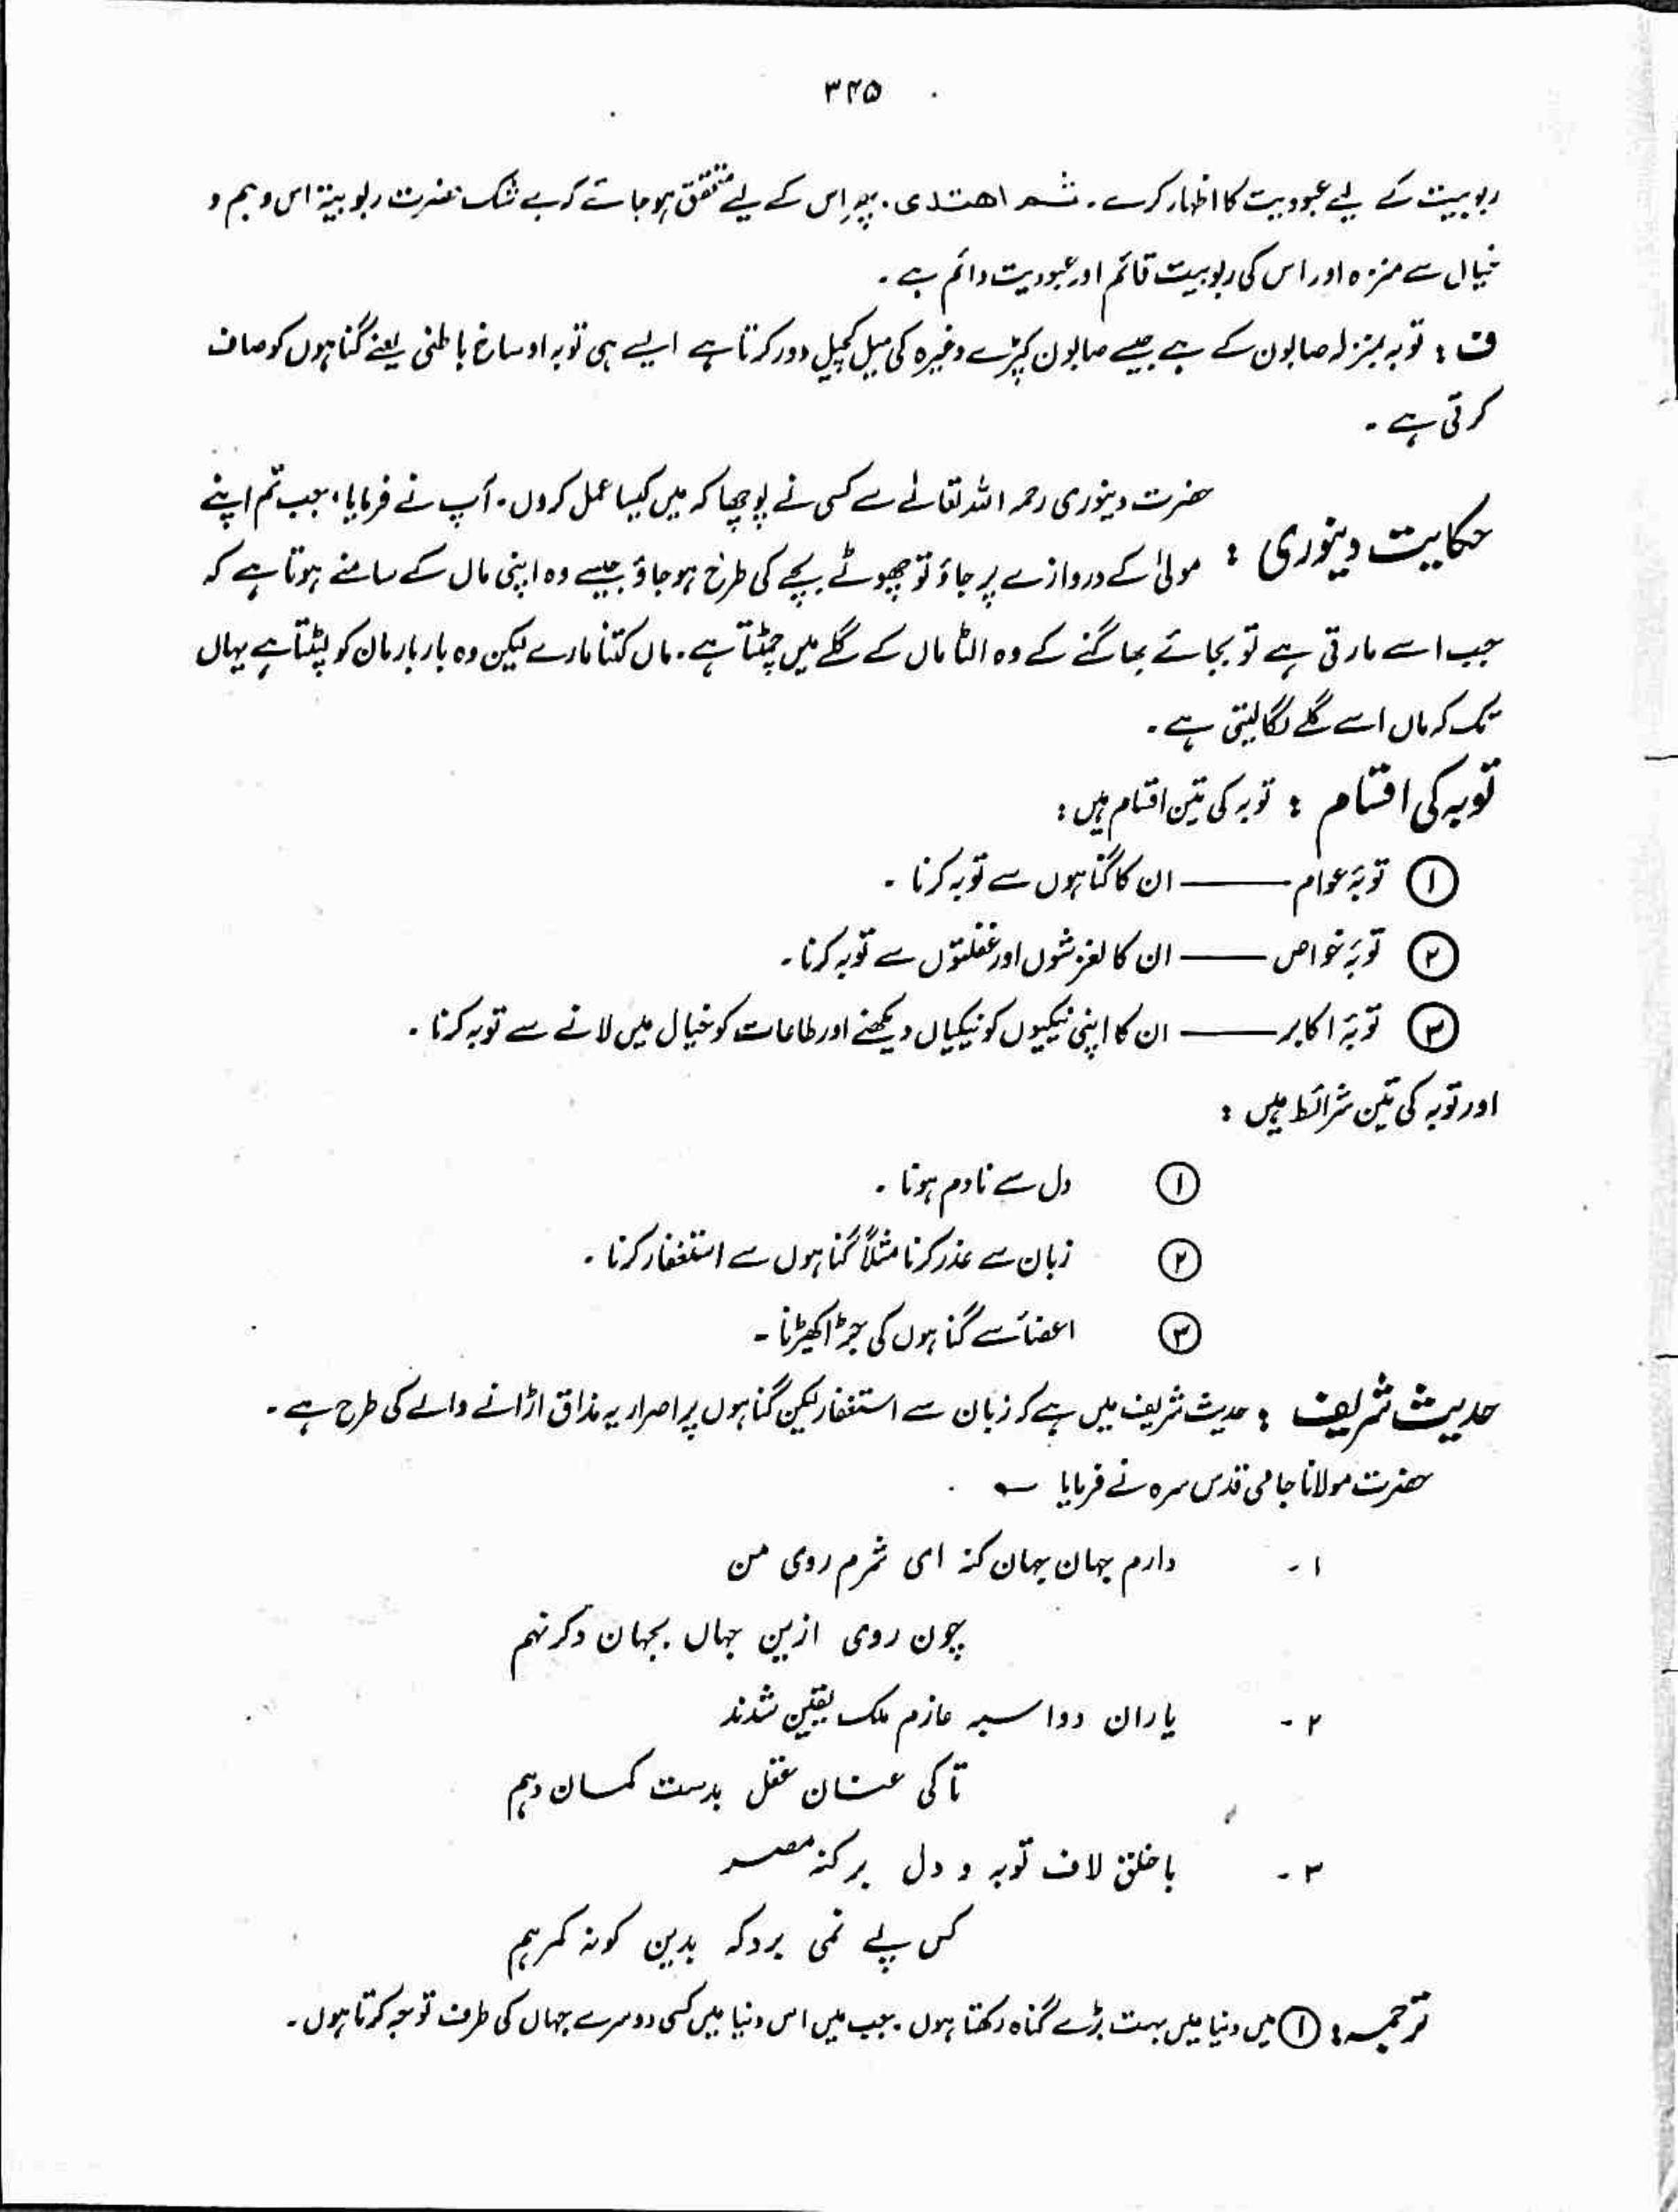 ۳۴۵
ربوبیت کے لیے عبودیت کا اظہار کرے۔ ثم اھتدی۔ پھر اس کے لیے متحقق ہو جائے کہ بے شک حضرت ربوبیۃ اس وہم و
خیال سے منزہ اور اس کی ربوبیت قائم اور عبودیت دائم ہے۔
ف : توبہ بمنزلہ صابون کے ہے جیسے صابون کپڑے وغیرہ کی میل کچیل دور کرتا ہے ایسے ہی توبہ اوساخ باطنی یعنے گناہوں کو صاف
کرتی ہے۔
حکایت دینوری : حضرت دینوری رحمہ اللہ تعالےٰ سے کسی نے پوچھا کہ میں کیسا عمل کروں۔ آپ نے فرمایا، جب تم اپنے
مولیٰ کے دروازے پر جاؤ تو چھوٹے بچے کی طرح ہو جاؤ جیسے وہ اپنی ماں کے سامنے ہوتا ہے کہ
جب اسے مارتی ہے تو بجائے بھاگنے کے وہ الٹا ماں کے گلے میں چمٹتا ہے۔ ماں کتنا مارے لیکن وہ بار بار ماں کو لپٹتا ہے یہاں
تک کہ ماں اسے گلے لگا لیتی ہے۔
توبہ کی اقسام : توبہ کی تین اقسام ہیں :
① توبۂ عوام ——— ان کا گناہوں سے توبہ کرنا۔
② توبۂ خواص ——— ان کا لغزشوں اور غفلتوں سے توبہ کرنا۔
③ توبۂ اکابر ——— ان کا اپنی نیکیوں کو نیکیاں دیکھنے اور طاعات کو خیال میں لانے سے توبہ کرنا۔
اور توبہ کی تین شرائط ہیں :
① دل سے نادم ہونا۔
② زبان سے عذر کرنا مثلاً گناہوں سے استغفار کرنا۔
③ اعضائے سے گناہوں کی جڑ اکھیڑنا۔
حدیث شریف : حدیث شریف میں ہے کہ زبان سے استغفار لیکن گناہوں پر اصرار یہ مذاق اڑانے والے کی طرح ہے۔
حضرت مولانا جامی قدس سرہ نے فرمایا ؎
۱۔ دارم جہان جہان گنہ ای شرم روی من
چون روی ازین جہاں بجہان دگر نہم
۲۔ یاران دواسبہ عازم ملک یقین شدند
تاکی عنان عقل بدست گمان دہم
۳۔ باخلق لاف توبہ و دل بر گنہ مصر
کس پے نمی برد کہ بدین گونہ گمرہم
ترجمہ : ① میں دنیا میں بہت بڑے گناہ رکھتا ہوں۔ جب میں اس دنیا میں کسی دوسرے جہاں کی طرف توجہ کرتا ہوں۔